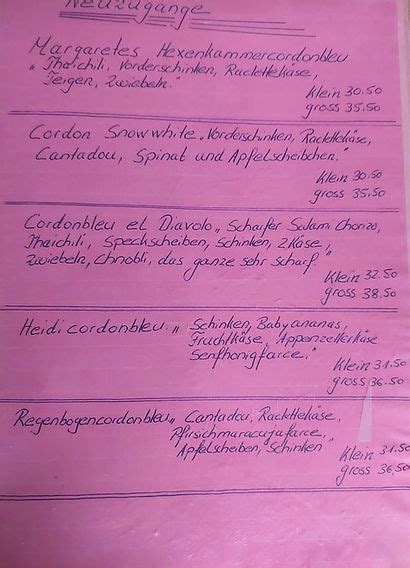 Neuzugänge
Margaretes Hexenkammercordonbleu
„Thaichili, Vorderschinken, Raclettekäse,
Feigen, Zwiebeln."
Klein 30.50
gross 35.50
Cordon Snowwhite „Vorderschinken, Raclettekäse,
Cantadou, Spinat und Apfelscheibchen."
Klein 30.50
gross 35.50
Cordonbleu el Diavolo „Scharfer Salami Chorizo,
Thaichili, Speckscheiben, Schinken, 2 Käse,
Zwiebeln, Chnobli, das ganze sehr scharf."
Klein 32.50
gross 38.50
Heidi cordonbleu „Schinken, Babyananas,
Fruchtkäse, Appenzellerkäse
Senfhonigfarce."
Klein 31.50
gross 36.50
Regenbogencordonbleu „Cantadou, Raclettekäse,
Pfirsichmaracujafarce,
Apfelscheiben, Schinken"
Klein 31.50
gross 36.50